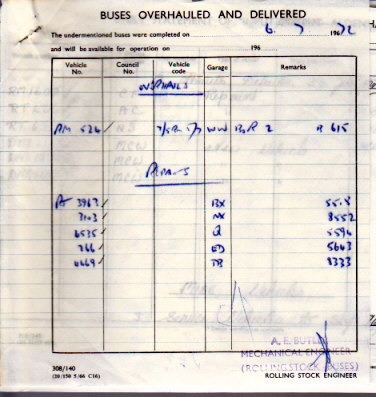 BUSES OVERHAULED AND DELIVERED
The undermentioned buses were completed on 6. 7 1967 72
and will be available for operation on 196
Vehicle No. Council No. Vehicle code Garage Remarks
OVERHAULS
RM 526 / NS 7/5RM 5/7 WW BoR 2 B 615
REPAIRS
3963 / BX 5518
3103 / NX 8552
6535 / Q 5594
266 / ED 5643
4469 / TB 8333
A. E. BUTLER
MECHANICAL ENGINEER
(ROLLING STOCK, BUSES)
308/140
(20/150 5/66 C16)
ROLLING STOCK ENGINEER